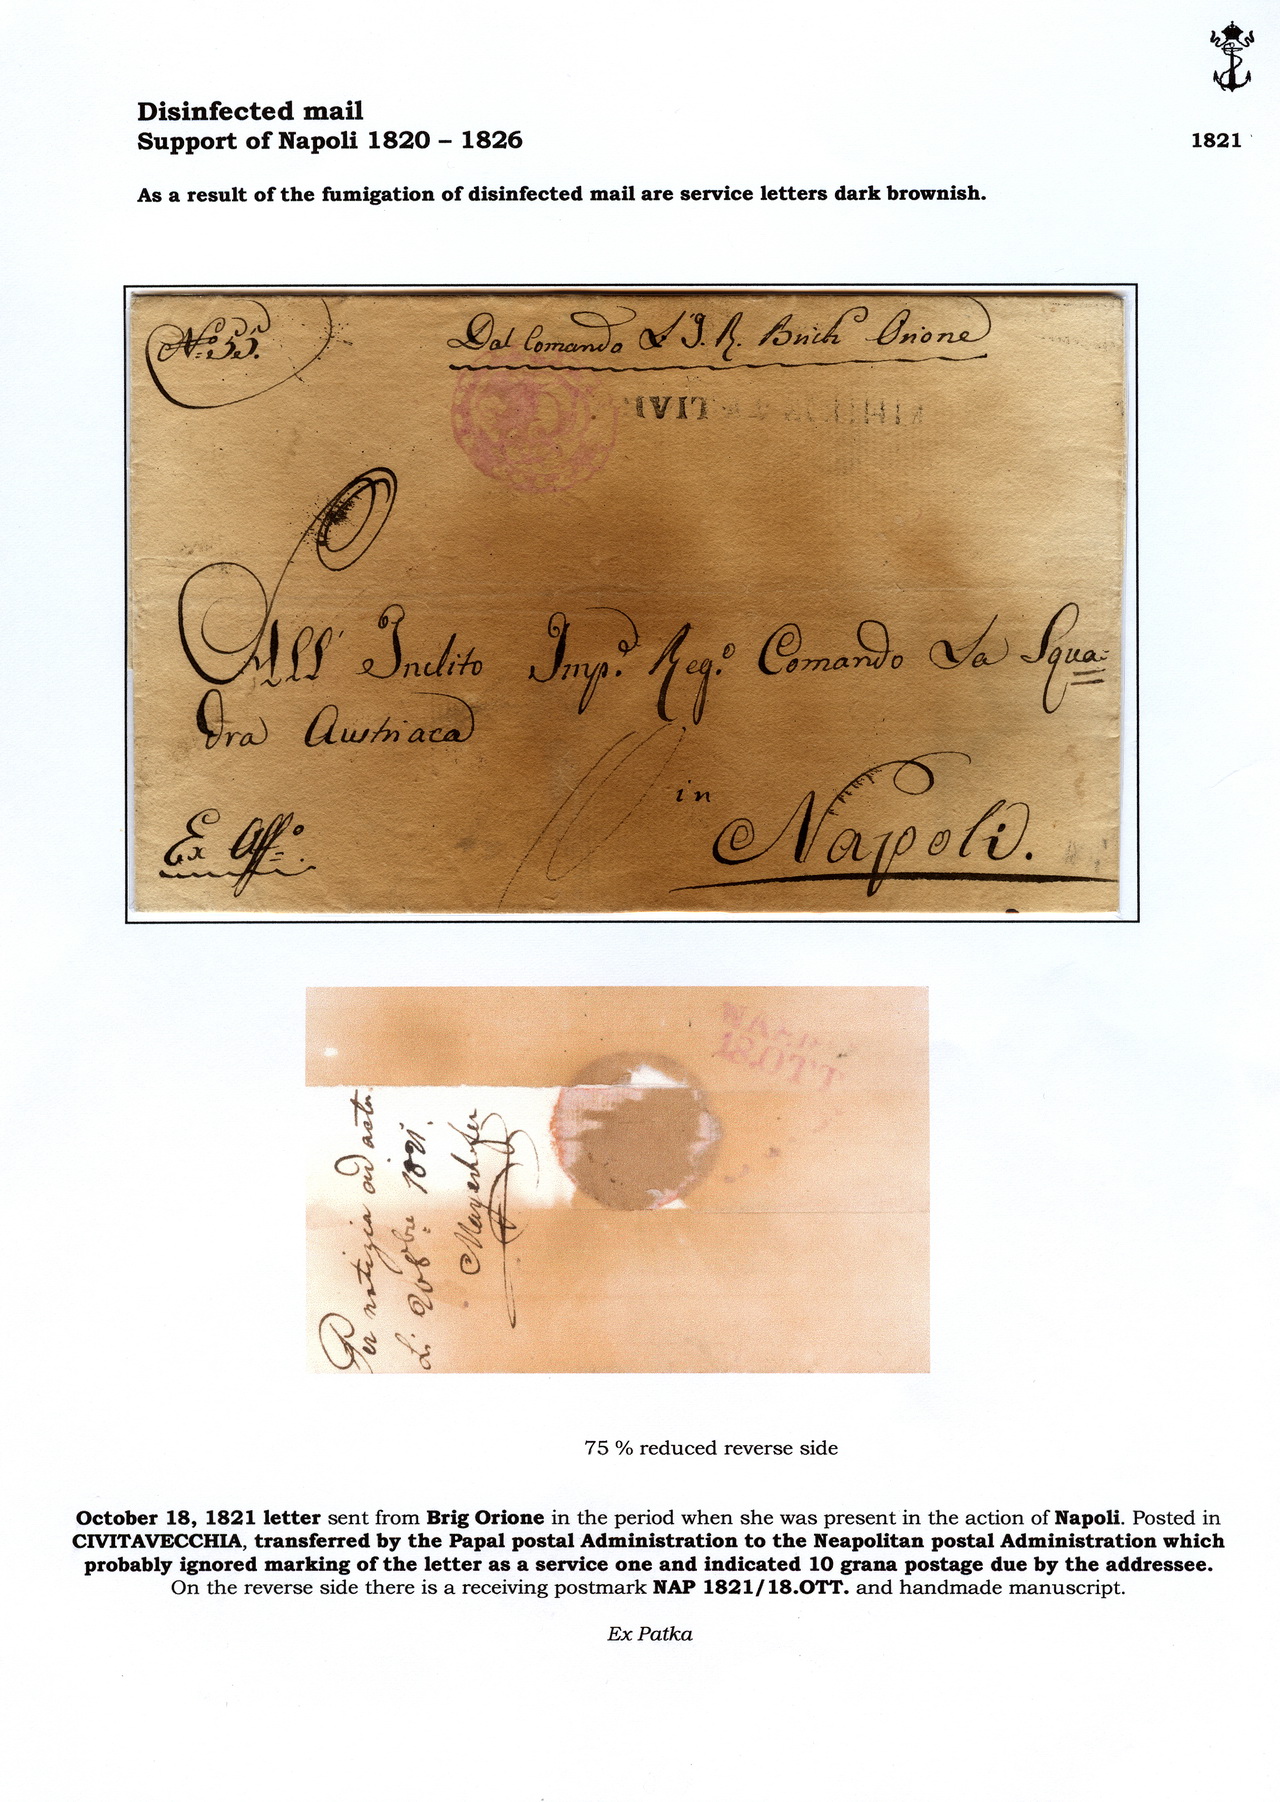 Disinfected mail
Support of Napoli 1820 – 1826
1821
As a result of the fumigation of disinfected mail are service letters dark brownish.
Dal Comando L' I. R. Brich Orione
CIVIT
All' Inclito Imp. Reg.o Comando La Squa=
dra Austriaca
in
Napoli.
Ex Aff.o
NAP
18.OTT
Per notizia ad acta
Li 1821.
75 % reduced reverse side
October 18, 1821 letter sent from Brig Orione in the period when she was present in the action of Napoli. Posted in
CIVITAVECCHIA, transferred by the Papal postal Administration to the Neapolitan postal Administration which
probably ignored marking of the letter as a service one and indicated 10 grana postage due by the addressee.
On the reverse side there is a receiving postmark NAP 1821/18.OTT. and handmade manuscript.
Ex Patka